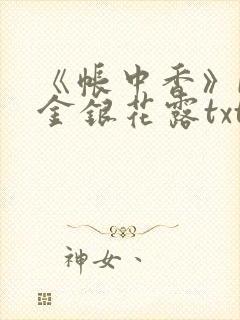 《帳中香》
金銀花露txt
神女、